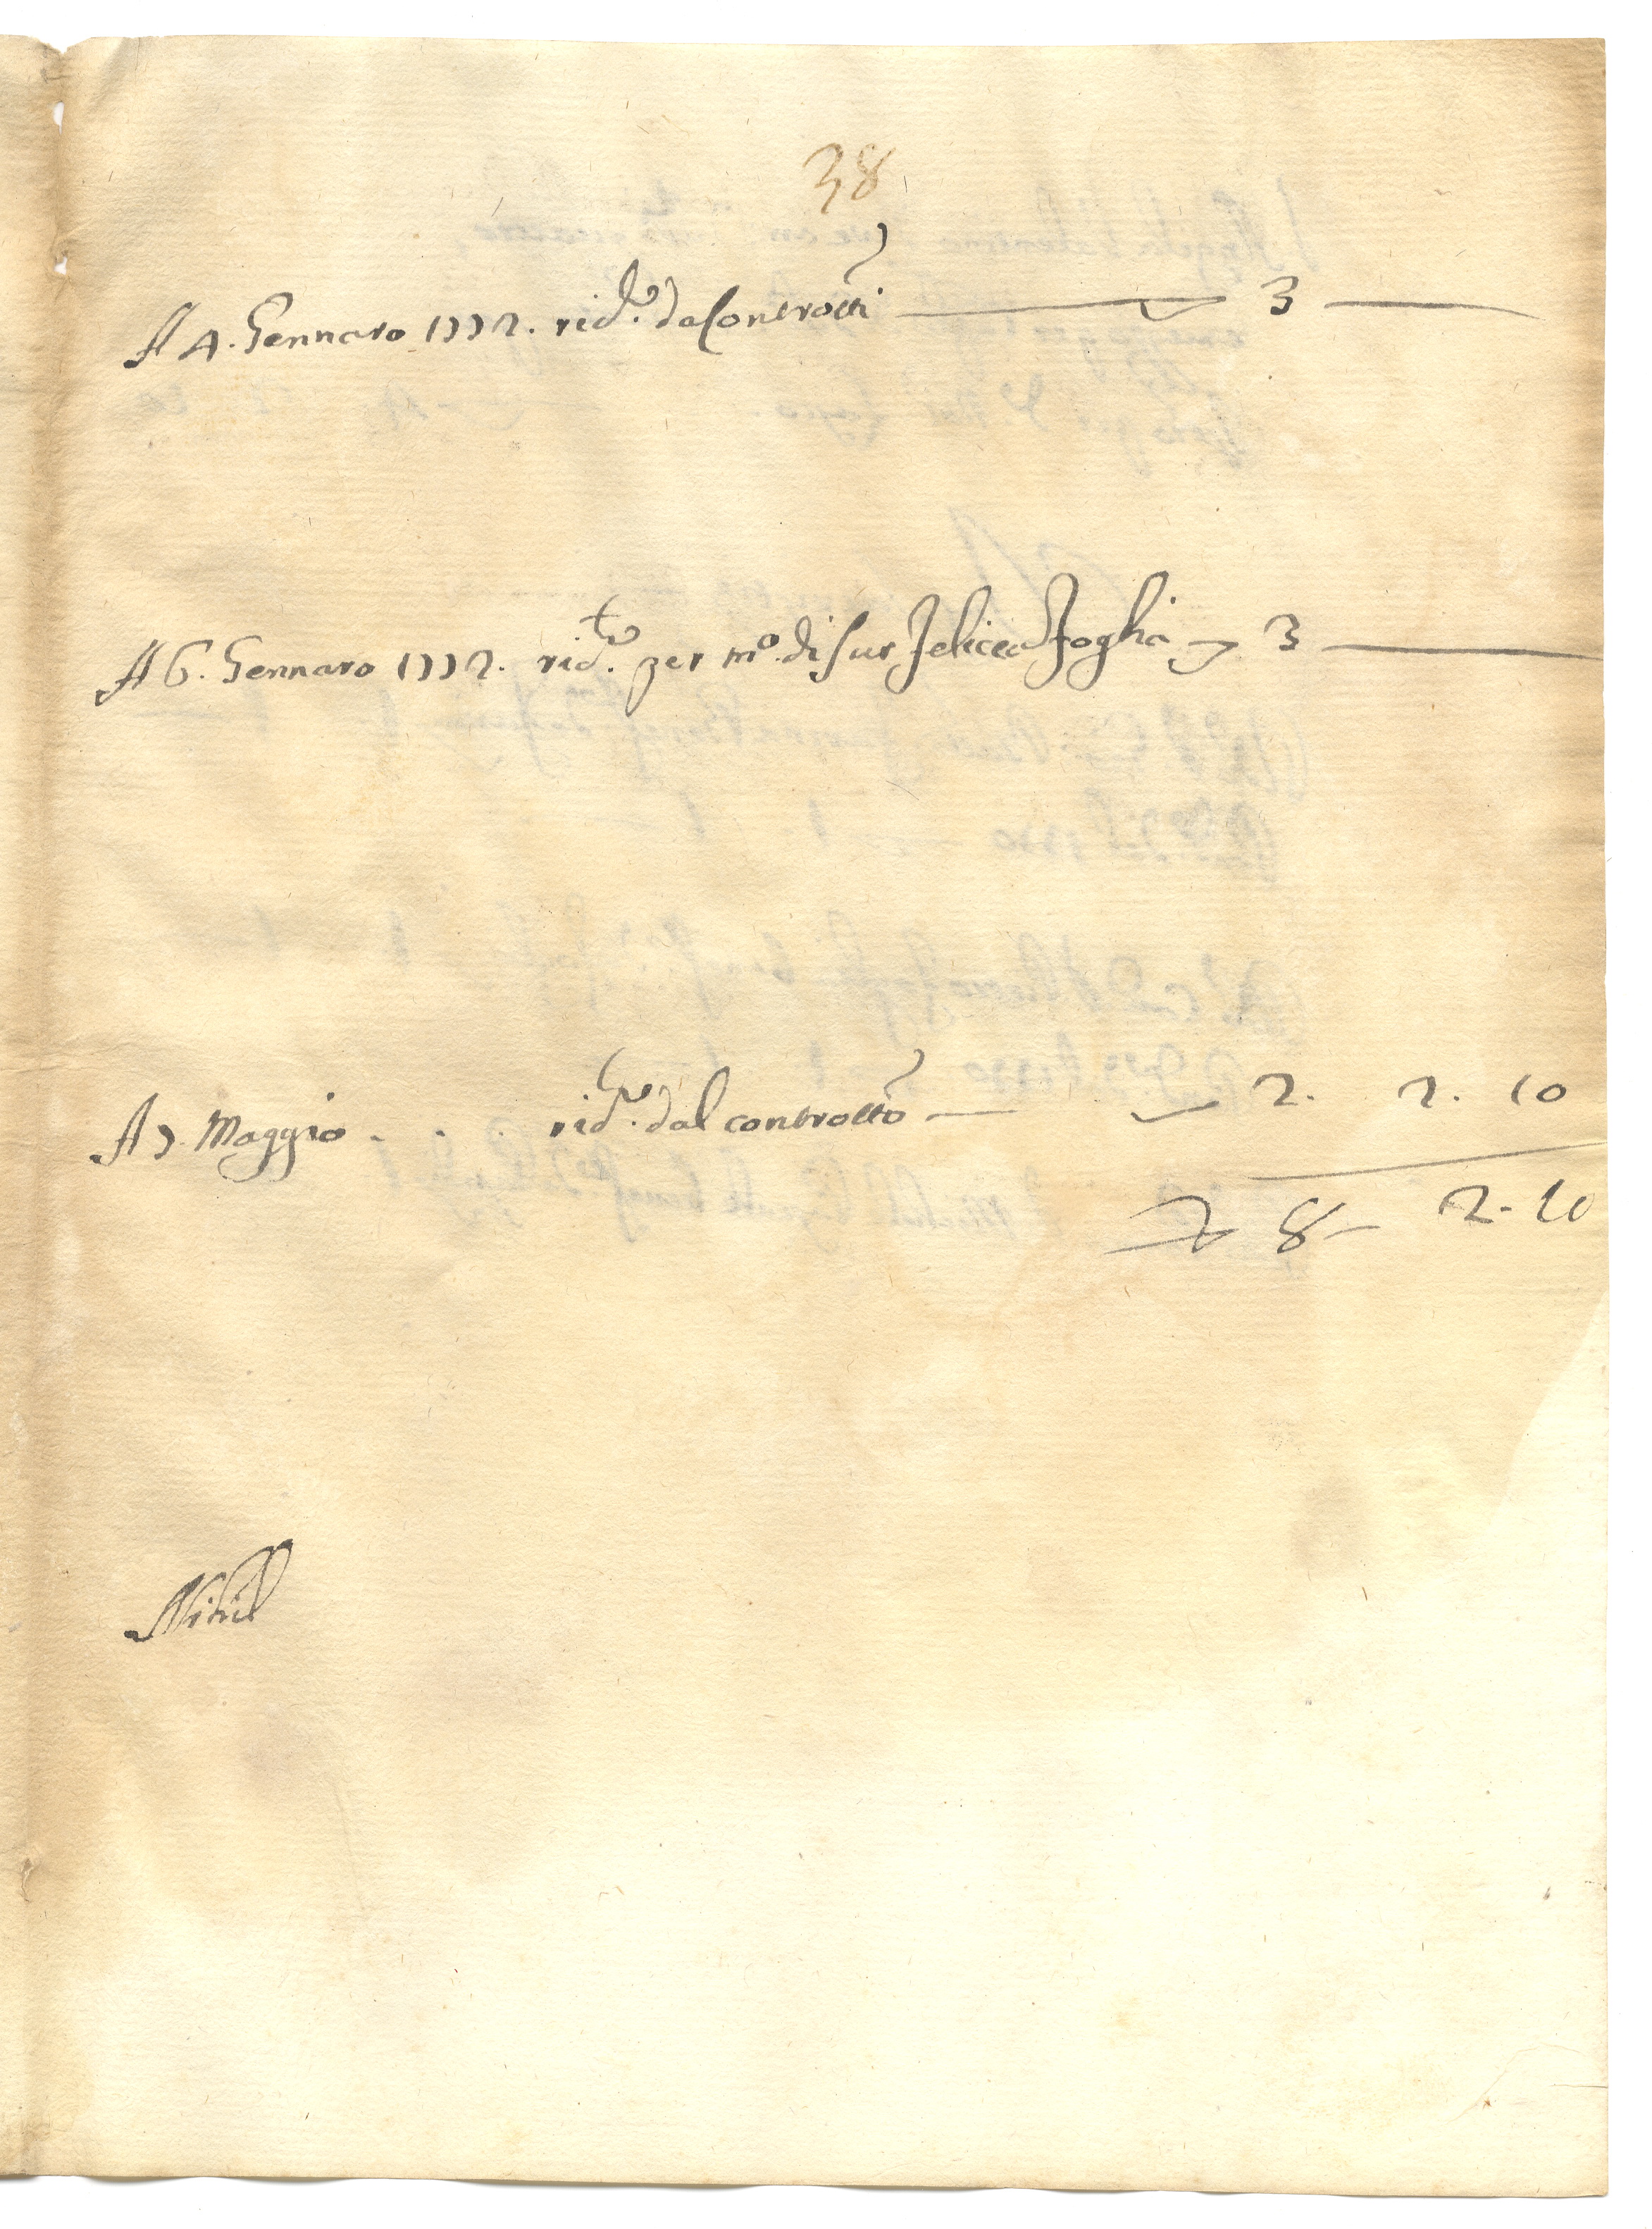 38
A 4. Gennaro 1772. rid.to da Controtti — 3 —
A 6. Gennaro 1772. rid.to per mo. di Sur Felicea Foglia — 3 —
A 7 Maggio . . . rid.to dal controtto — 2. 2. 10
8 — 2 - 10
Nihil